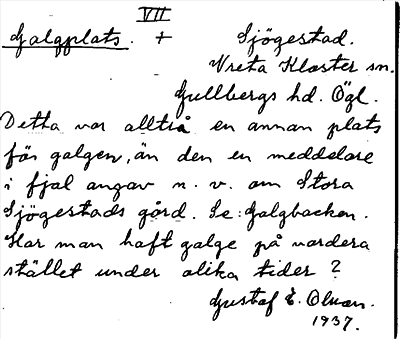 VII
Galgplats. + Sjögestad.
Vreta Kloster sn.
Gullbergs hd. Ögl.
Detta var alltså en annan plats
för galgen, än den en meddelare
i fjol angav n. v. om Stora
Sjögestads gård. Se: Galgbacken.
Har man haft galge på vardera
stället under olika tider?
Gustaf E. Olsson.
1937.